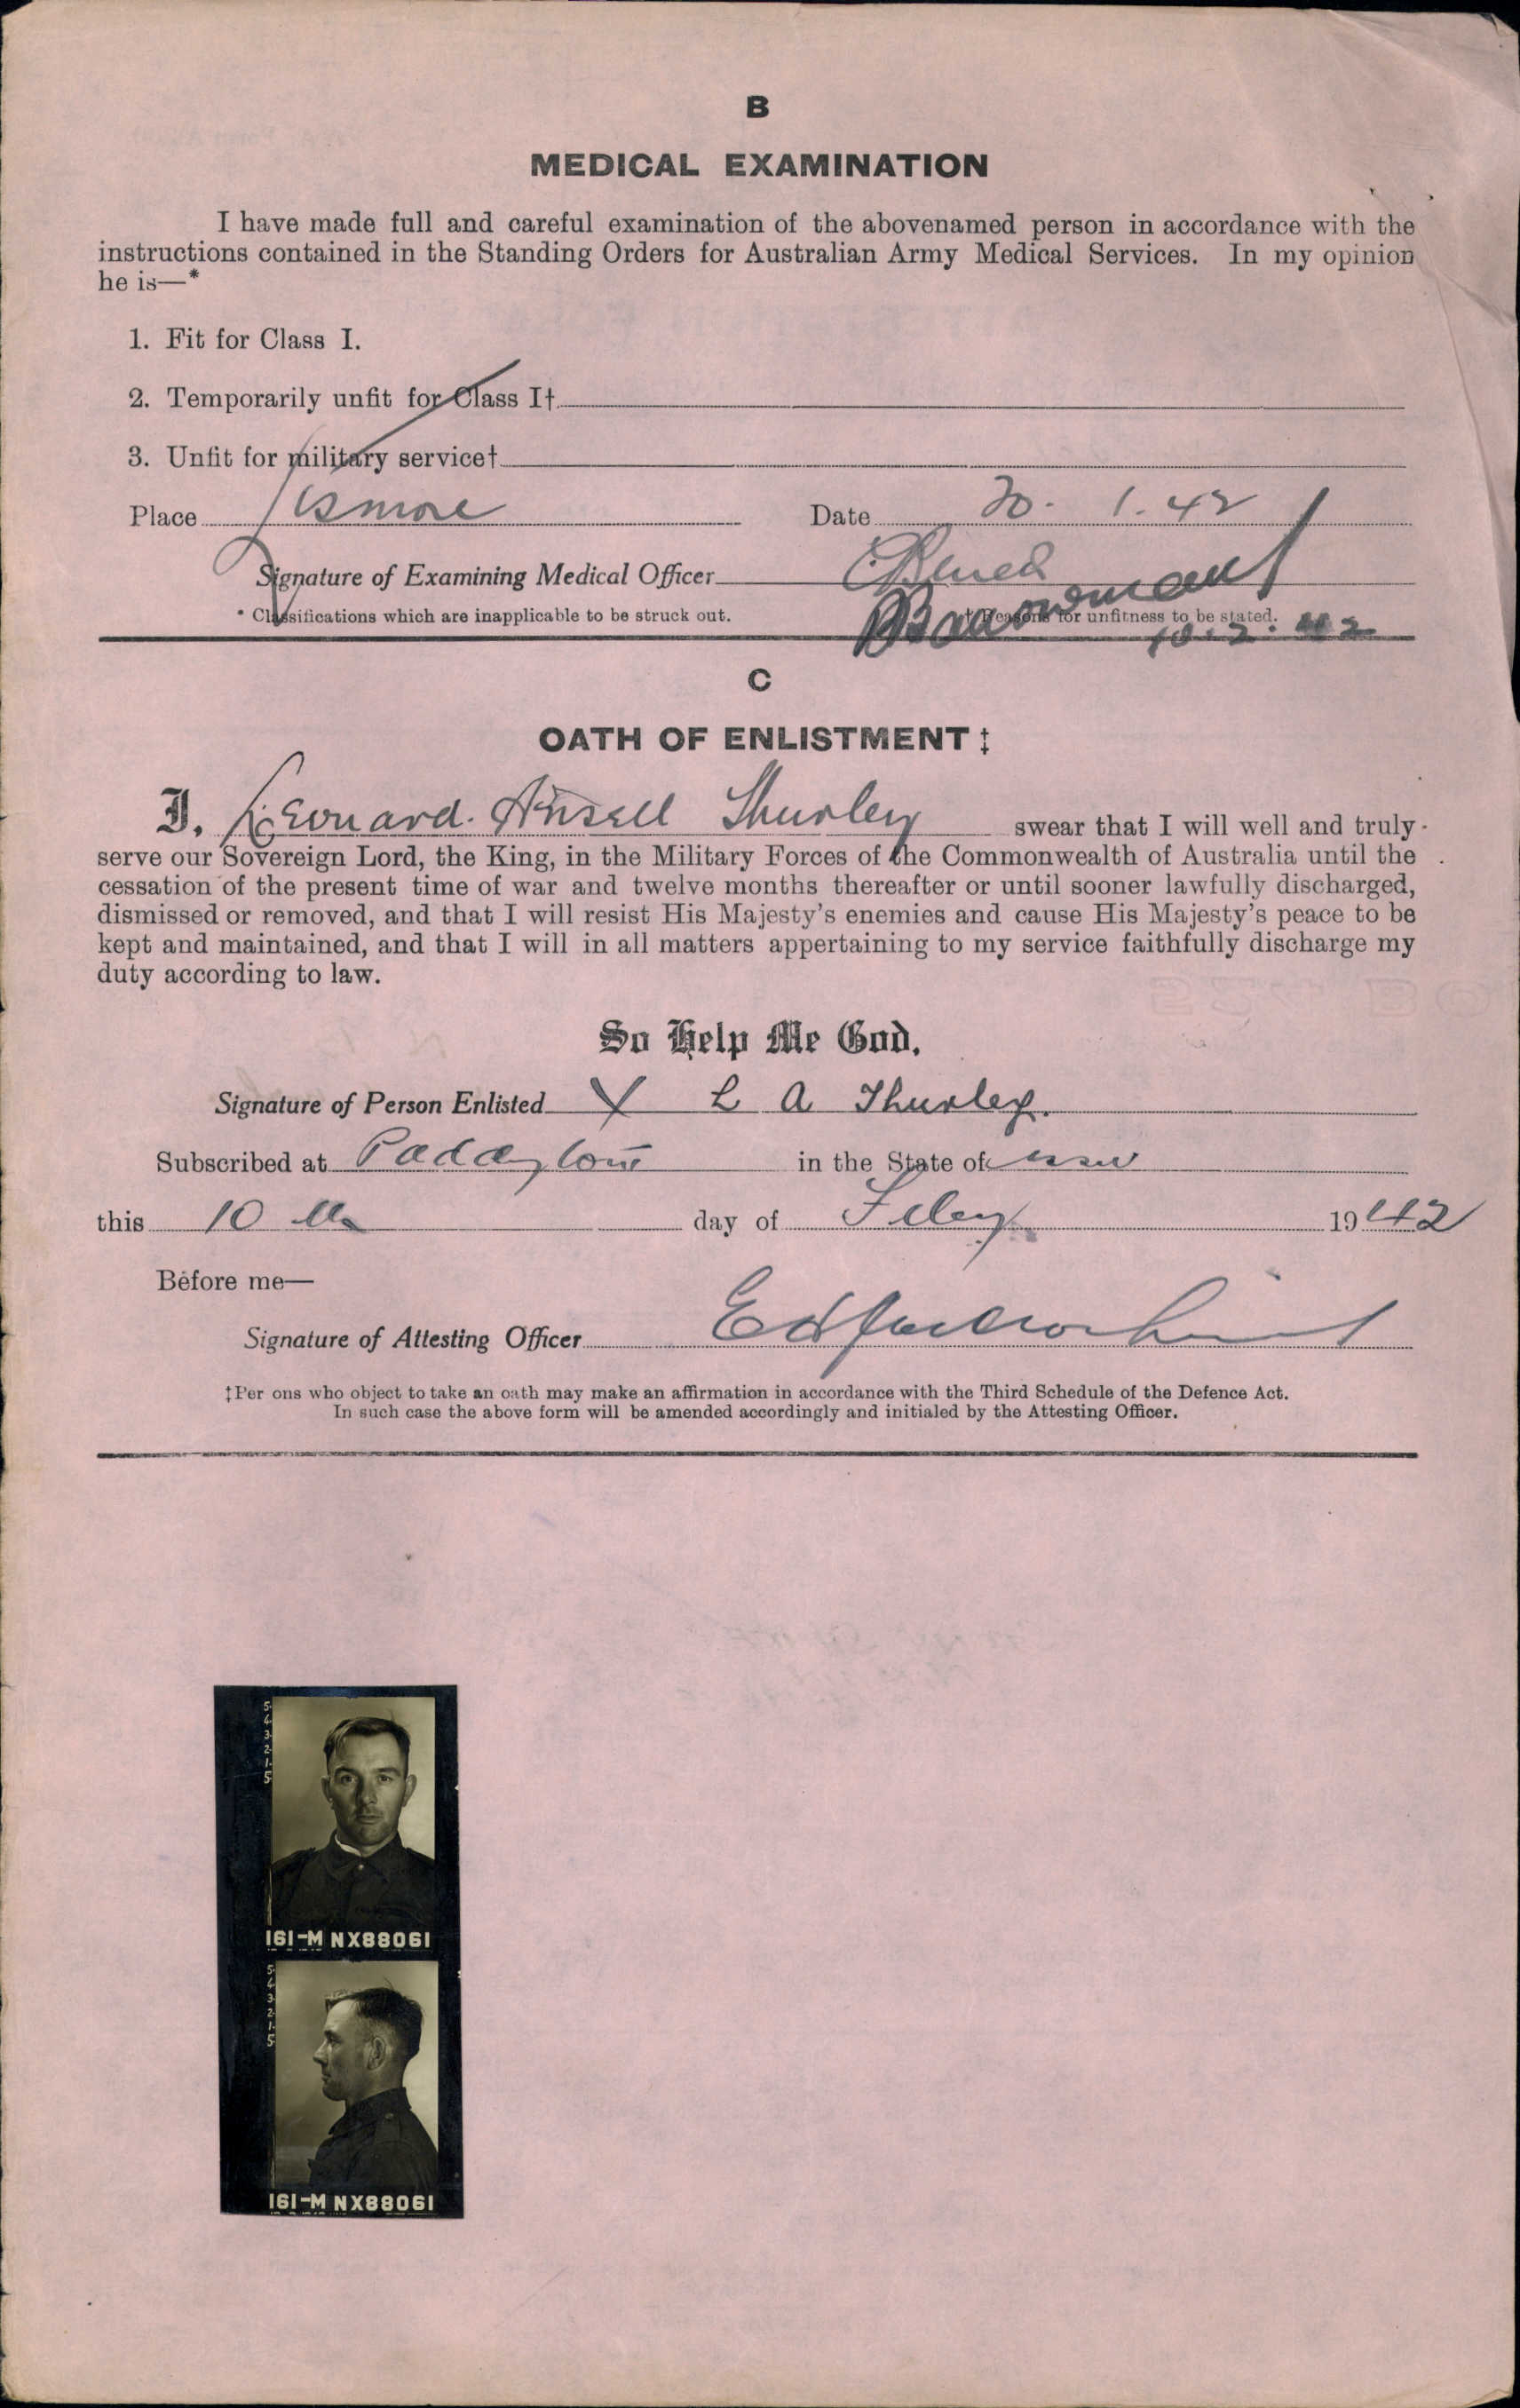 B
MEDICAL EXAMINATION
I have made full and careful examination of the abovenamed person in accordance with the
instructions contained in the Standing Orders for Australian Army Medical Services. In my opinion
he is—*
1. Fit for Class I.
2. Temporarily unfit for Class I†
3. Unfit for military service†
Place Lismore Date 20. 1. 42
Signature of Examining Medical Officer
* Classifications which are inapplicable to be struck out. † Reasons for unfitness to be stated.
10. 2. 42
C
OATH OF ENLISTMENT ‡
I, Leonard Ansell Thurley swear that I will well and truly
serve our Sovereign Lord, the King, in the Military Forces of the Commonwealth of Australia until the
cessation of the present time of war and twelve months thereafter or until sooner lawfully discharged,
dismissed or removed, and that I will resist His Majesty's enemies and cause His Majesty's peace to be
kept and maintained, and that I will in all matters appertaining to my service faithfully discharge my
duty according to law.
So Help Me God.
Signature of Person Enlisted X L A Thurley.
Subscribed at Paddington in the State of NSW
this 10th day of Feby 1942
Before me—
Signature of Attesting Officer
‡Per ons who object to take an oath may make an affirmation in accordance with the Third Schedule of the Defence Act.
In such case the above form will be amended accordingly and initialed by the Attesting Officer.
5
4
3
2
1
5
161-M NX88061
5
4
3
2
1
5
161-M NX88061